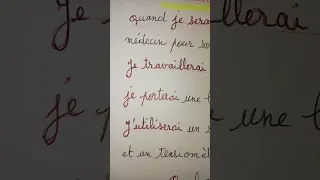 Quand je sera
Je
médecin pour so
Je travaillerai
je porterai une
J'utiliserai un
et un tensiomèt